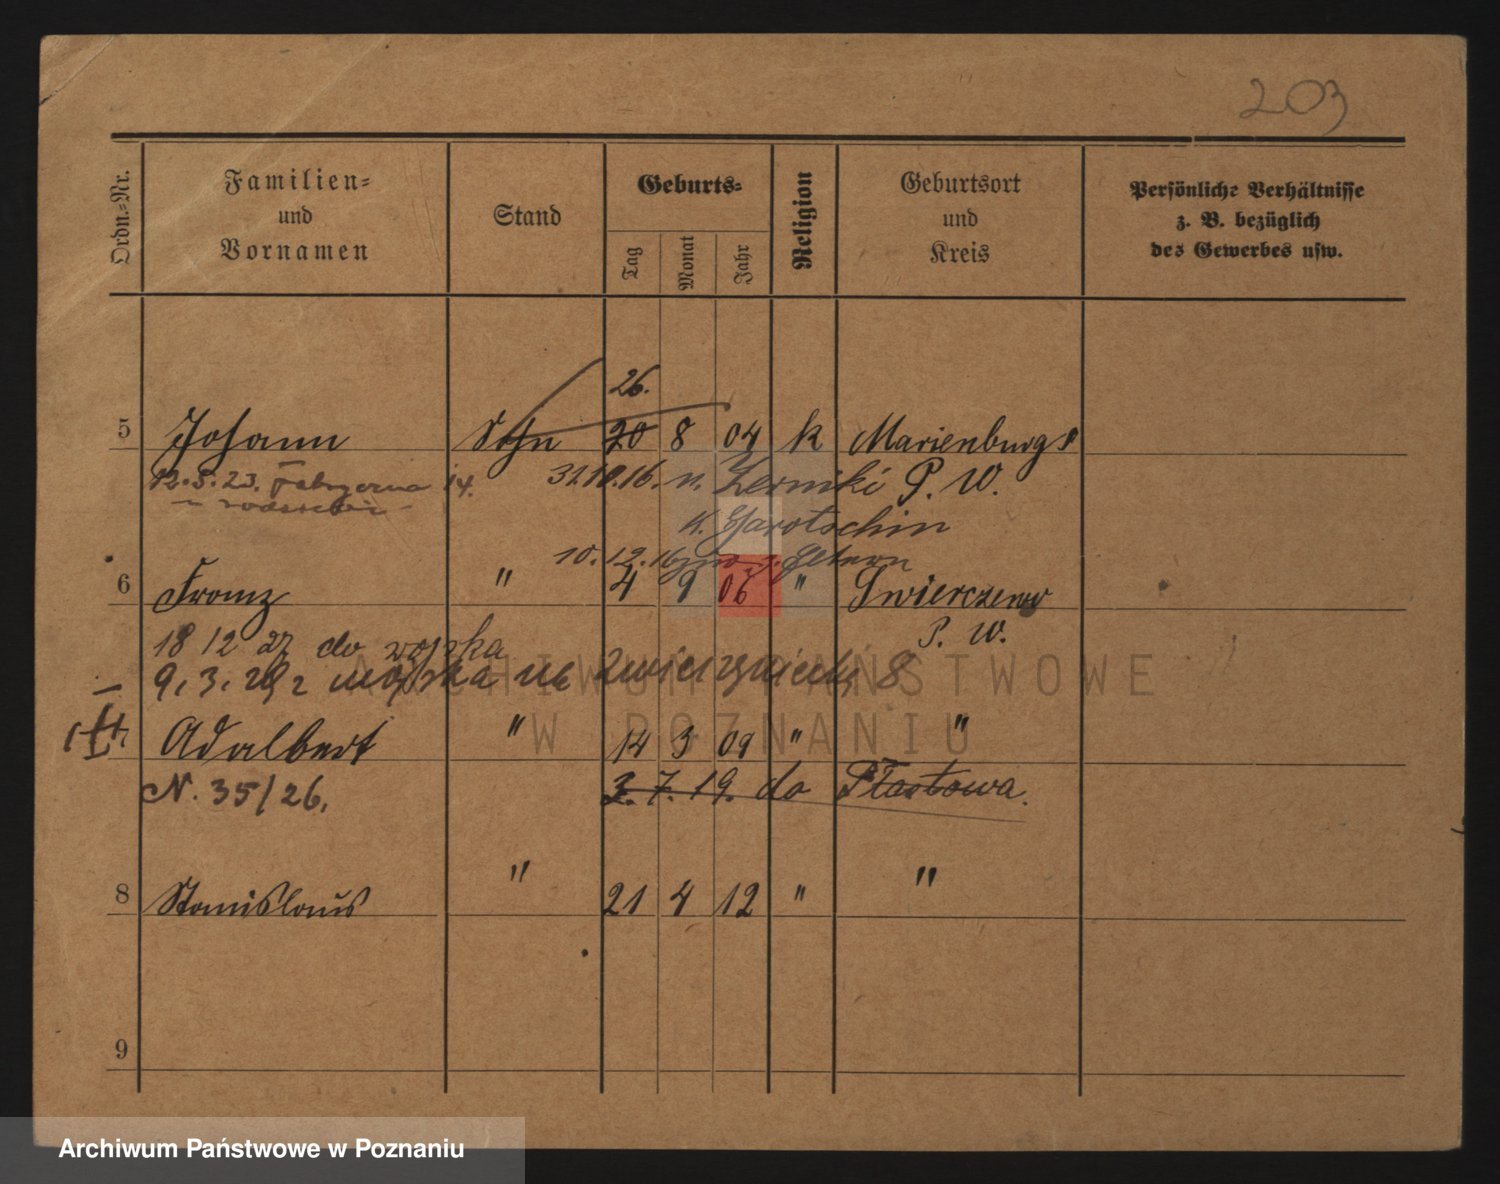 203
Ordn.-Nr.
Familien-
und
Vornamen
Stand
Geburts-
Tag
Monat
Jahr
Religion
Geburtsort
und
Kreis
Persönliche Verhältnisse
z. B. bezüglich
des Gewerbes usw.
26.
5 Johann Sohn 20 8 04 k Marienburg
12.5.23. Fabryczna 14. 31.10.16. n. Zerniki P. W.
K. Jarotschin
10.12.16 z. Eltern
6 Franz " 4 9 06 " Swierczewo
P. W.
18 12 27 do wojska
9.3.29 z wojska
7 Adalbert " 14 3 09 " "
N. 35/26. 3.7.19. do
8 Stanislaus " 21 4 12 " "
9
ARCHIWUM PAŃSTWOWE
W POZNANIU
Archiwum Państwowe w Poznaniu